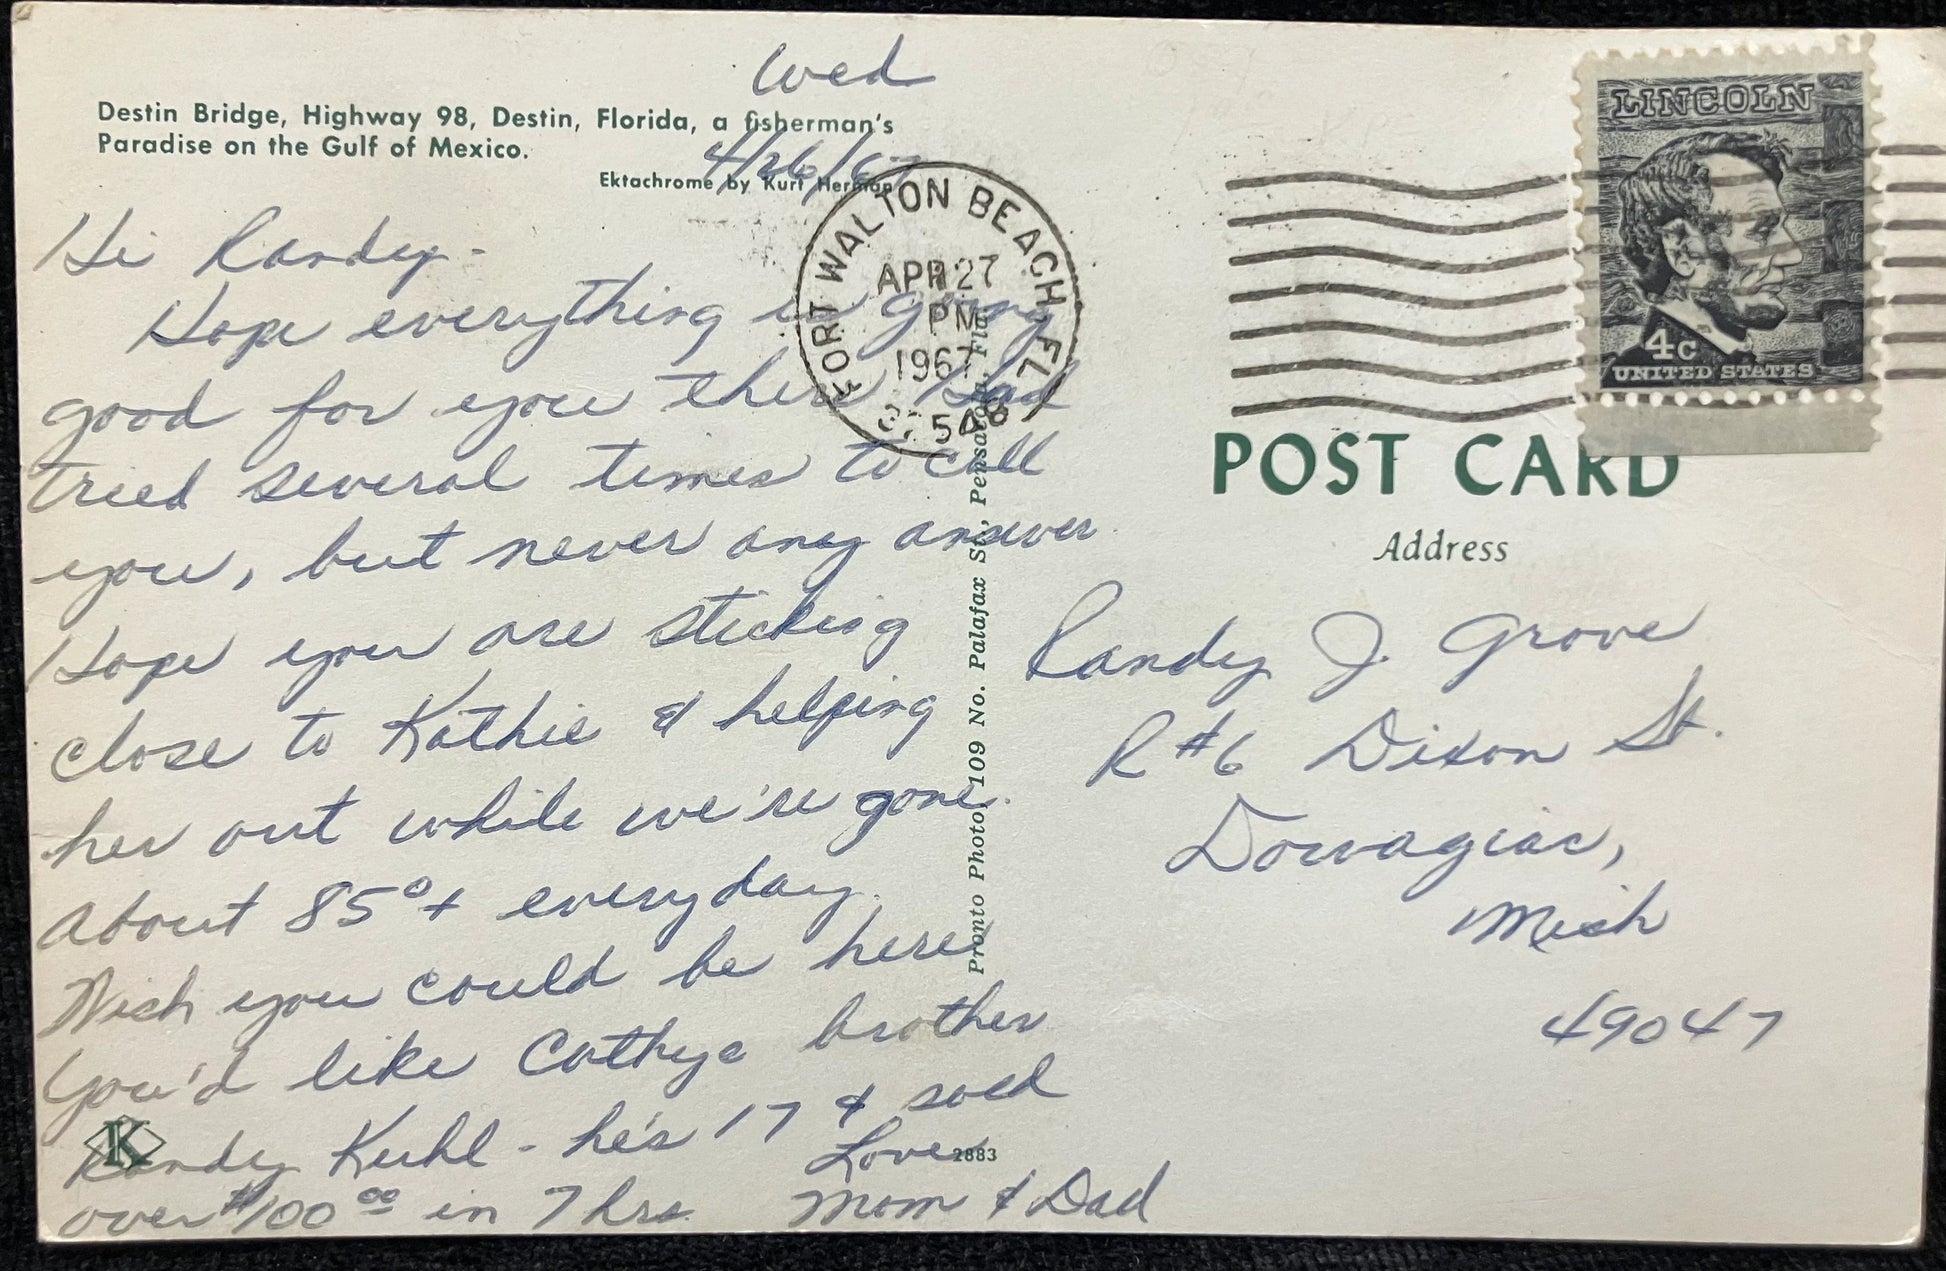 Wed
Destin Bridge, Highway 98, Destin, Florida, a fisherman's
Paradise on the Gulf of Mexico.
4/26/67
Ektachrome by Kurt Herman
Hi Randy-
Hope everything is going
good for you there Dad
tried several times to call
you, but never any answer
Hope you are sticking
close to Kathie & helping
her out while we're gone.
About 85°+ everyday.
Wish you could be here
You'd like Cathys brother
Randy Kuhl - he's 17 & sold
over $100.00 in 7 hrs.
Love
Mom & Dad
K
2883
Pronto Photo 109 No. Palafax St., Pensacola, Fla.
FORT WALTON BEACH FL
APR 27
PM
1967
32548
LINCOLN
4c
UNITED STATES
POST CARD
Address
Randy J. Grove
R #6 Dixon St.
Dowagiac,
Mich
49047